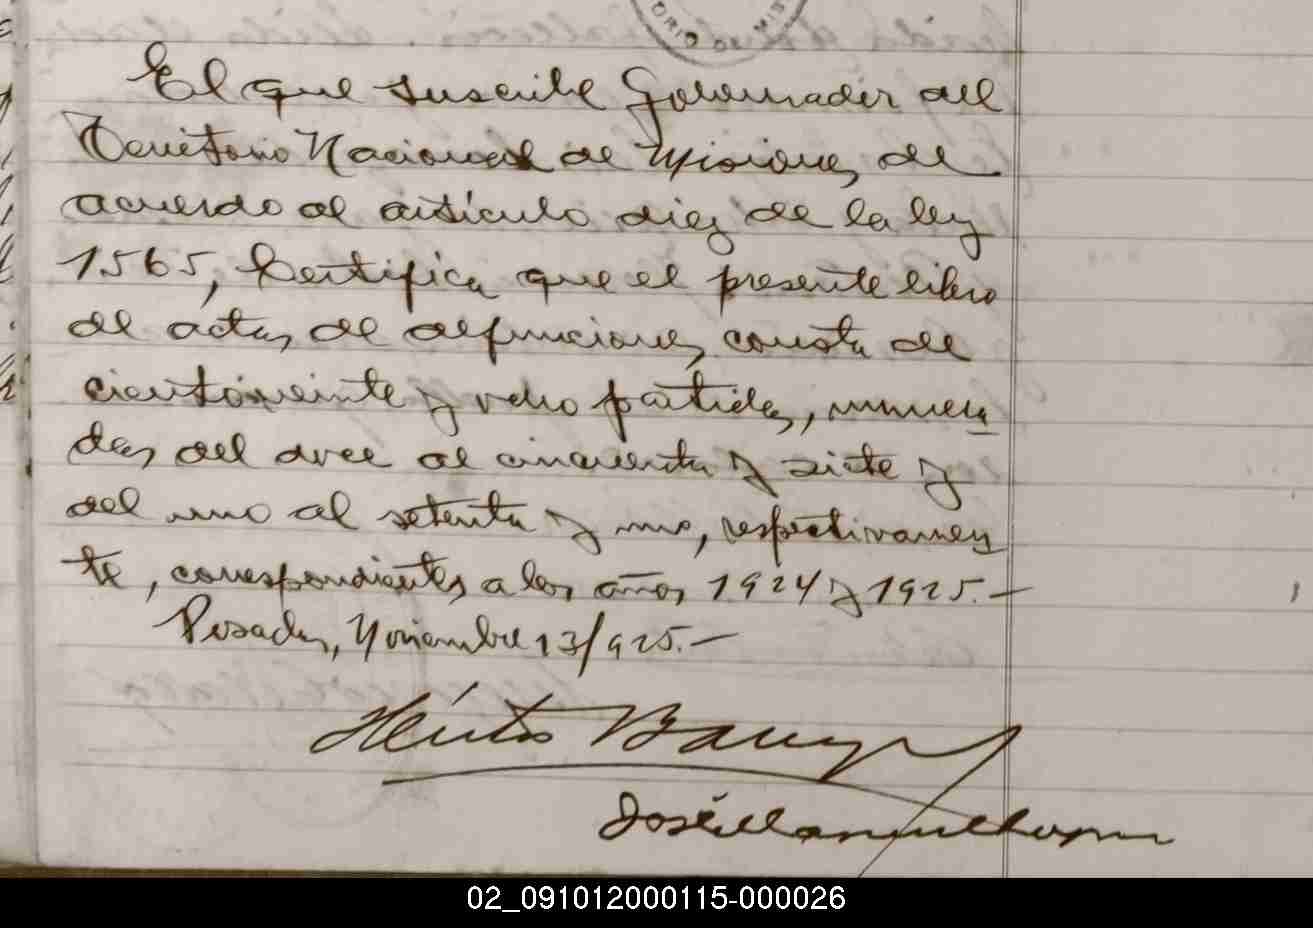 ORIO MIS
El que suscribe Gobernador del
Territorio Nacional de Misiones, de
acuerdo al artículo diez de la ley
1565, Certifica que el presente libro
de actas de defunciones consta de
ciento veinte y ocho partidas, numera
das del doce al cincuenta y siete y
del uno al setenta y uno, respectivamen
te, correspondientes a los años 1924 y 1925.—
Posadas, Noviembre 13/925.—
Héctor Barreyro
José Manuel
02_091012000115-000026